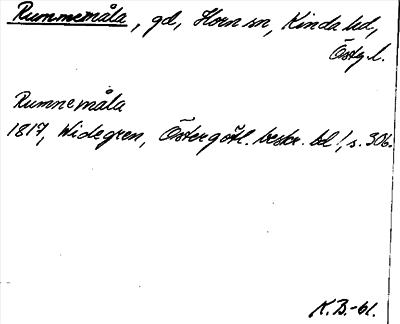 Rummemåla, gd, Horn sn, Kinda hd,
Östg. l.
Rumnemåla
1817, Widegren, Östergötl. beskr. bd 1, s. 306.
K.B.-61.